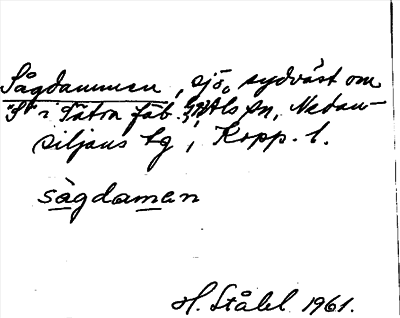 Sågdammen, sjö, sydväst om
"S" i Säter fäb. i Als sn, Nedan-
siljans tg, Kopp. l.
sàgdaman
H. Ståhl 1961.